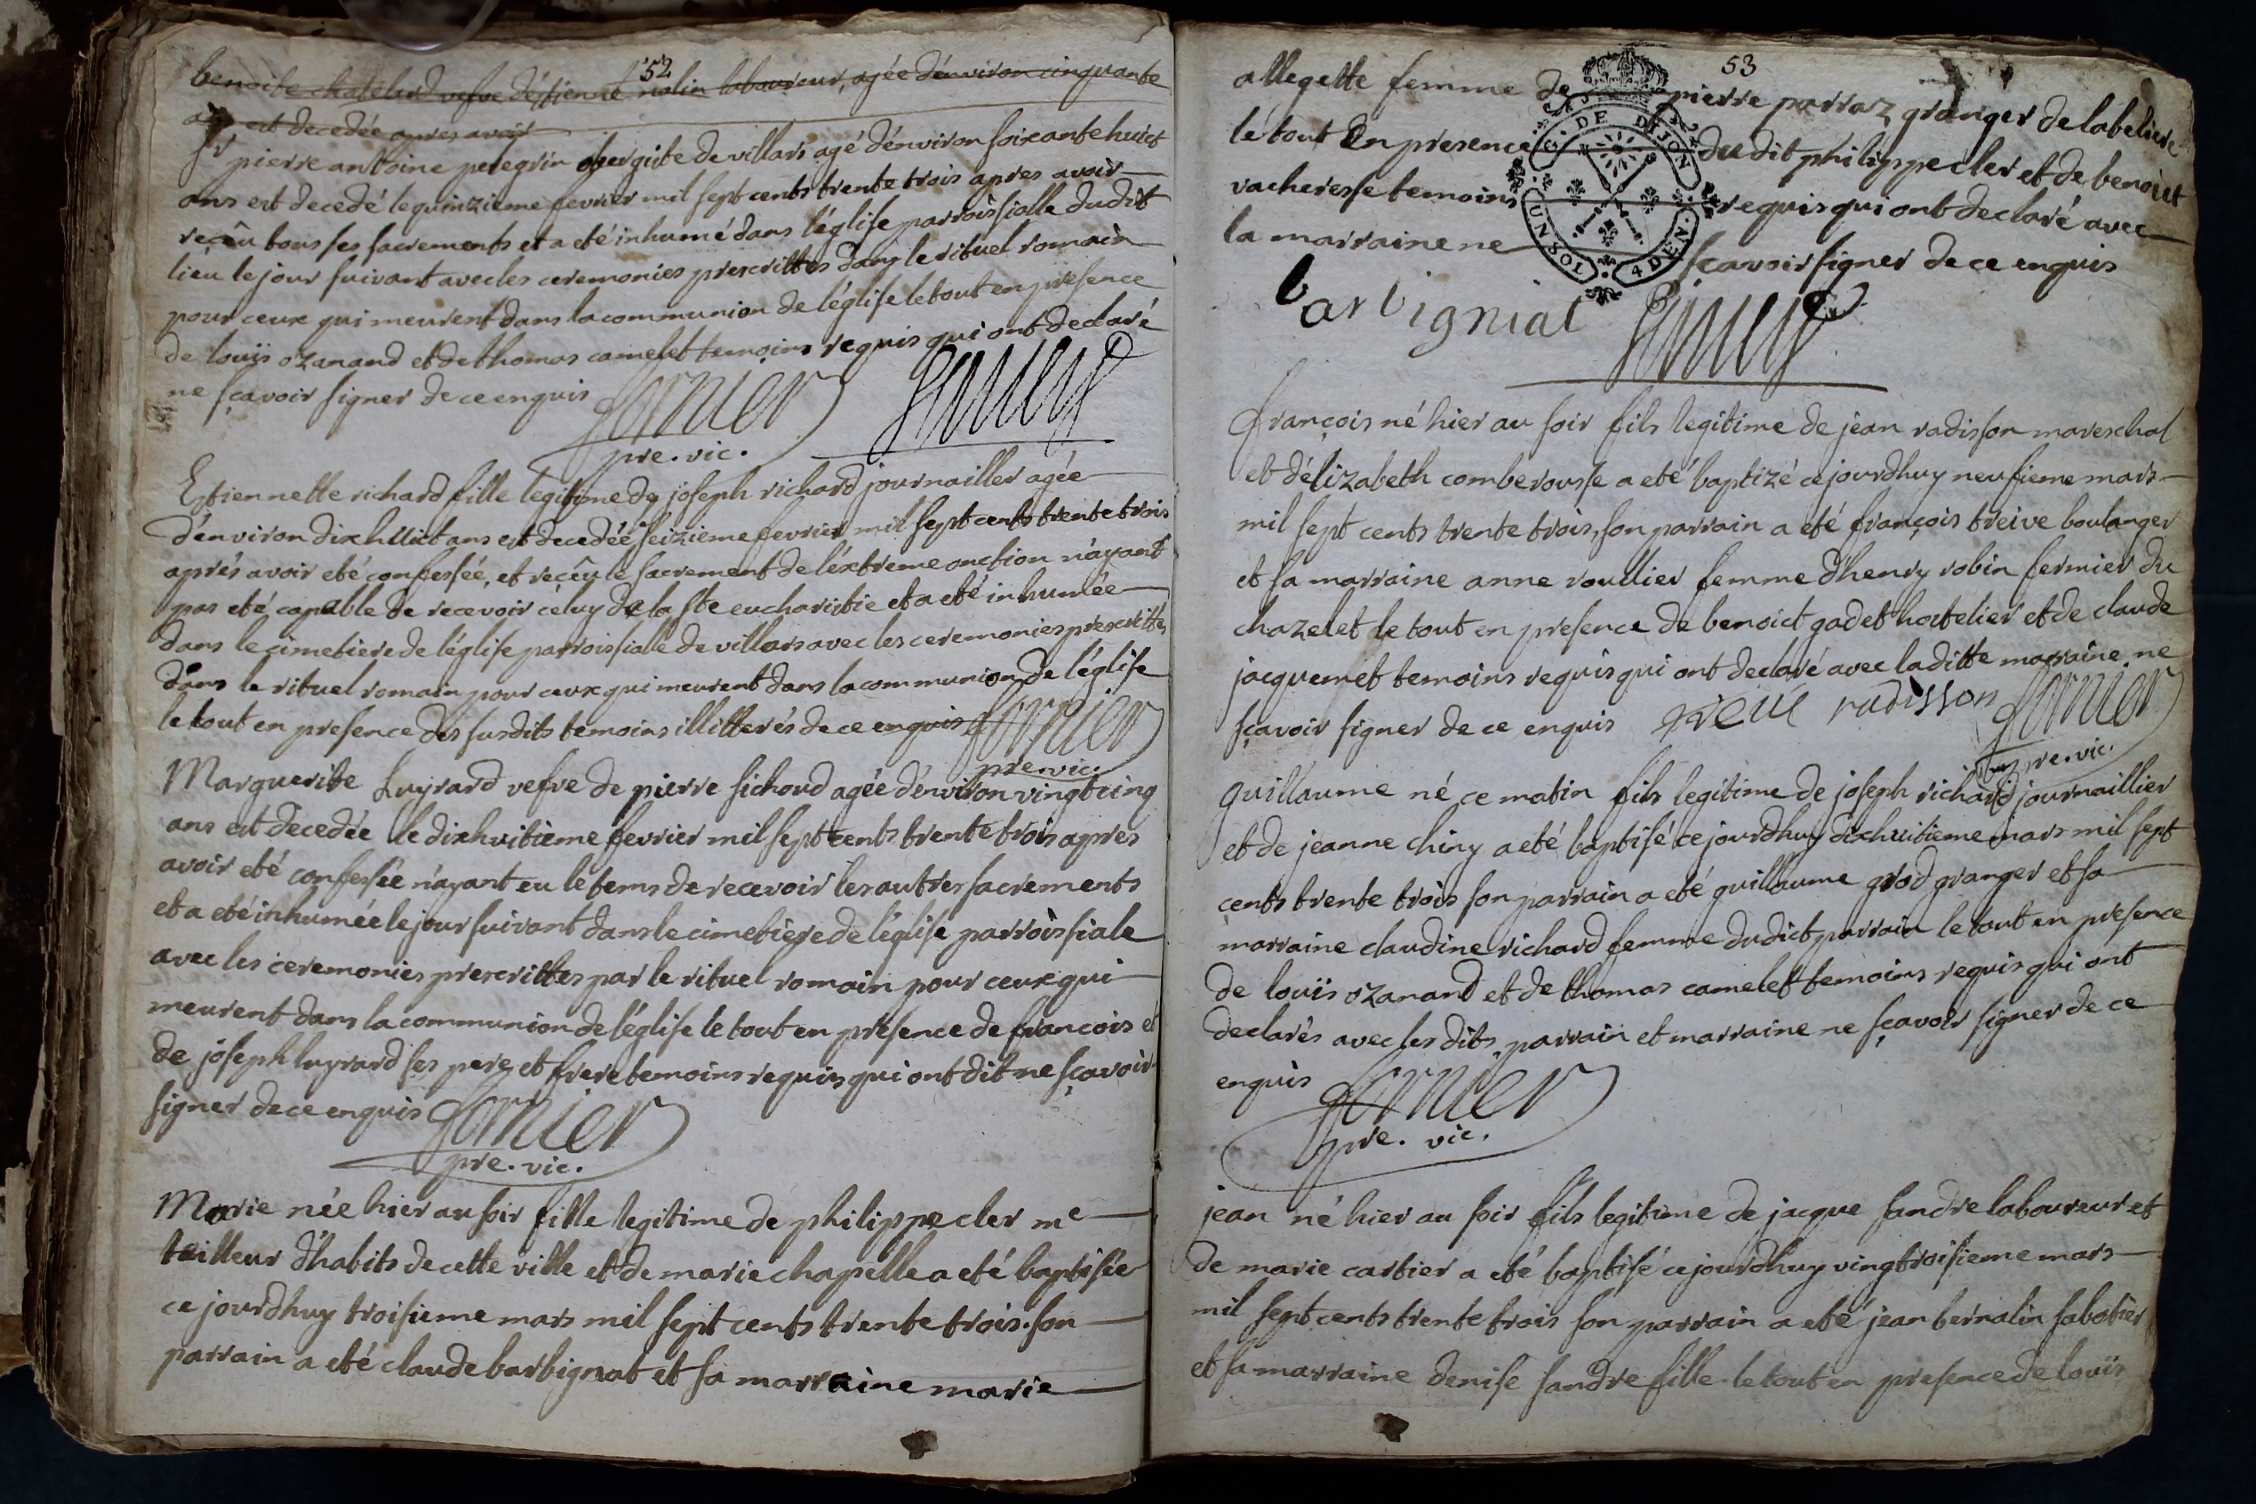 52
benoite chatelard vefve d'éstienne nalin laboureur, agée d'énviron cinquante
ans est decedée apres avoir
sr pierre antoine peregrin obergiste de villars agé d'énviron soixante huict
ans est decedé le quinzieme fevrier mil sept cents trente trois apres avoir
recêu tous ses sacrements et a eté inhumé dans l'église parroissialle dudit
lieu le jour suivant avec les ceremonies prescrittes dans le rituel romain
pour ceux qui meurent dans la communion de l'église le tout en presence
de louïs ozanand et de thomas camelet temoins requis qui ont declaré
ne sçavoir signer de ce enquis
pre. vic.
Estiennette richard fille legitime de joseph richard journailler agée
d'énviron dixhuict ans est decedée seizieme fevrier mil sept cents trente trois
aprés avoir eté confessée, et recêu le sacrement de l'éxtreme onction n'ayant
pas eté capable de recevoir céluy de la ste eucharistie et a eté inhumée
dans le cimetiere de l'église parroissialle de villars avec les ceremonies prescrittes
dans le rituel romain pour ceux qui meurent dans la communion de l'église
le tout en presence des susdits temoins illitterés de ce enquis
pre. vic.
Marguerite Luyrard vefve de pierre sichoud agée d'énviron vingtcinq
ans est decedée le dixhuitieme fevrier mil sept cents trente trois aprés
avoir eté confessée n'ayant eu le tems de recevoir les autres sacrements
et a eté inhumée le jour suivant dans le cimetiere de l'église parroissiale
avec les ceremonies prescrittes par le rituel romain pour ceux qui
meurent dans la communion de l'église le tout en presence de françois et
de joseph luyrard ses pere et frere temoins requis qui ont dit ne sçavoir
signer de ce enquis
pre. vic.
Marie née hier au soir fille legitime de philippe cler me
tailleur d'habits de cette ville et de marie chapelle a eté baptisée
ce jourdhuy troisieme mars mil sept cents trente trois. son
parrain a eté claude barbignat et sa marraine marie
53
allegatte femme de pierre parraz granger de labeliere
le tout en presence dudit philippe cler et de benoict
vacheresse temoins requis qui ont declaré avec
la marraine ne sçavoir signer de ce enquis
G. DE DIJON
UN SOL. 4 DEN.
barbignat
françois né hier au soir fils legitime de jean radisson mareschal
et d'élizabeth comberousse a eté baptizé ce jourdhuy neufieme mars
mil sept cents trente trois, son parrain a eté françois treive boulanger
et sa marraine anne roullier femme d'henry robin fermier du
chazelet le tout en presence de benoict gadet hostelier et de claude
jacquemet temoins requis qui ont declaré avec laditte marraine ne
sçavoir signer de ce enquis treive radisson
pre. vic.
guillaume né ce matin fils legitime de joseph richard journaillier
et de jeanne chiny a eté baptisé ce jourdhuy dixhuitieme mars mil sept
cents trente trois son parrain a eté guillaume grod granger et sa
marraine claudine richard femme dudict parrain le tout en presence
de louïs ozanand et de thomas camelet temoins requis qui ont
declarés avec les dits parrain et marraine ne sçavoir signer de ce
enquis
pre. vic.
jean né hier au soir fils legitime de jacque sandre laboureur et
de marie cartier a eté baptisé ce jourdhuy vingtroisieme mars
mil sept cents trente trois son parrain a eté jean bernalin sabotier
et sa marraine denise sandre fille. le tout en presence de louïs